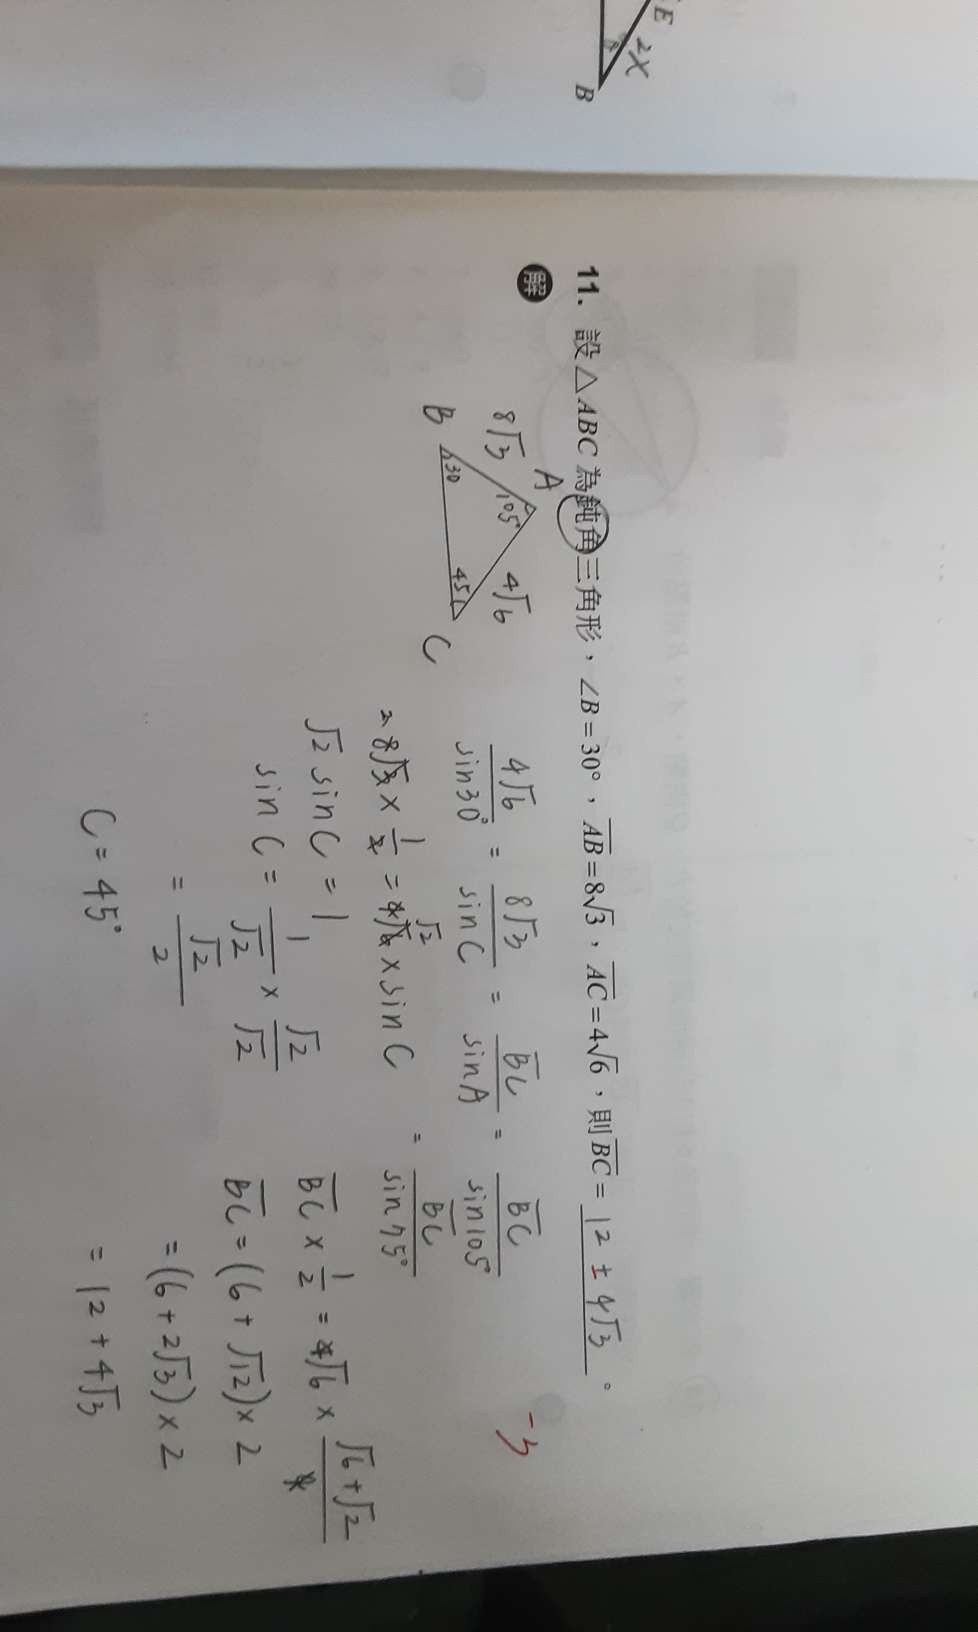 E
2X
B
11. 設△ABC為鈍角三角形，∠B=30°，AB=8√3，AC=4√6，則BC= 12 ± 4√3 。
-5
解
A
8√3
105°
4√6
B
30
45
C
4√6/sin30° = 8√3/sinC = BC/sinA = BC/sin105° = BC/sin75°
8√3 × 1/2 = 4√6 × sinC
2
√2
√2 sinC = 1
sinC = 1/√2 × √2/√2
= √2/2
C = 45°
BC × 1/2 = 4√6 × (√6+√2)/4
BC = (6 + √12) × 2
= (6 + 2√3) × 2
= 12 + 4√3